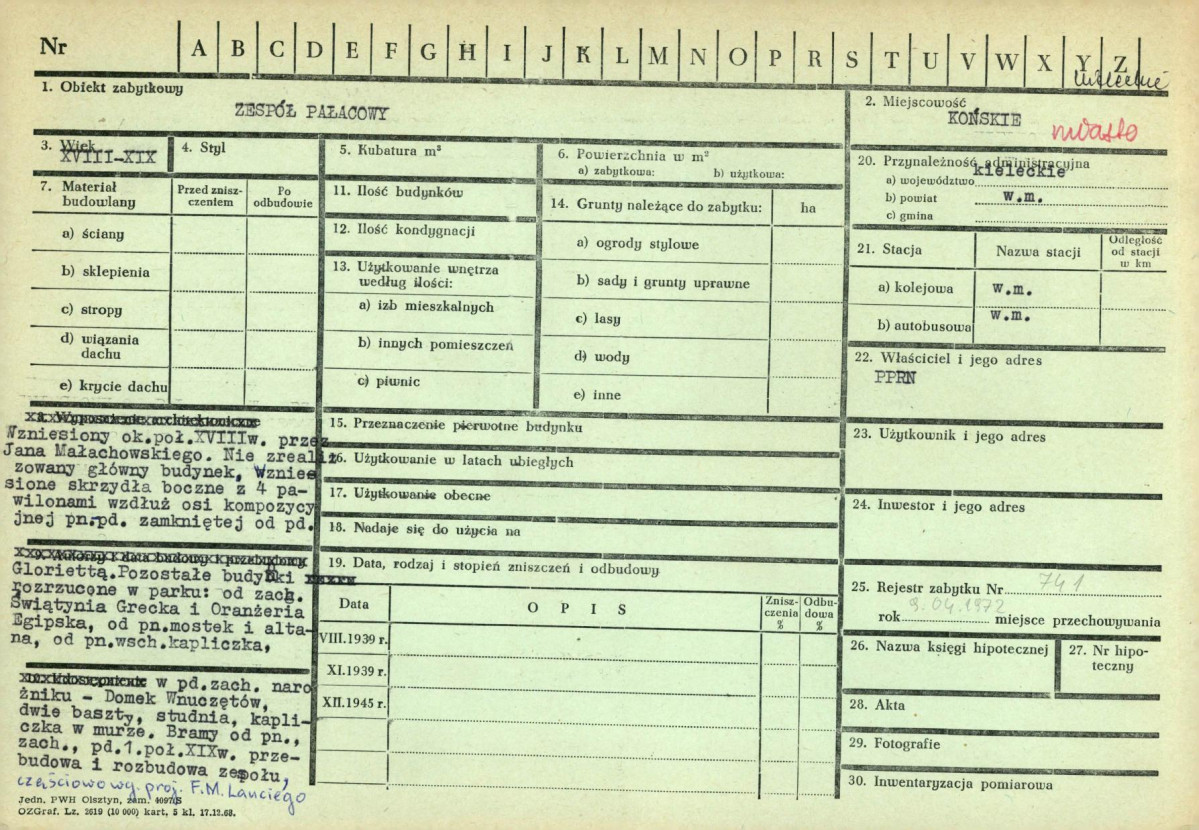 Nr A B C D E F G H I J K L M N O P R S T U V W X Y Z
1. Obiekt zabytkowy
ZESPÓŁ PAŁACOWY
2. Miejscowość
KOŃSKIE
miasto
3. Wiek
XVIII-XIX
4. Styl
5. Kubatura m³
6. Powierzchnia w m²
a) zabytkowa: b) użytkowa:
7. Materiał budowlany
Przed znisz-
czeniem
Po
odbudowie
a) ściany
b) sklepienia
c) stropy
d) wiązania
dachu
e) krycie dachu
11. Ilość budynków
12. Ilość kondygnacji
13. Użytkowanie wnętrza
według ilości:
a) izb mieszkalnych
b) innych pomieszczeń
c) piwnic
14. Grunty należące do zabytku: ha
a) ogrody stylowe
b) sady i grunty uprawne
c) lasy
d) wody
e) inne
20. Przynależność administracyjna
kieleckie
a) województwo
b) powiat w.m.
c) gmina
21. Stacja Nazwa stacji
Odległość
od stacji
w km
a) kolejowa w.m.
b) autobusowa w.m.
22. Właściciel i jego adres
PPRN
23. Użytkownik i jego adres
24. Inwestor i jego adres
25. Rejestr zabytku Nr 741
9.04.1972
rok miejsce przechowywania
26. Nazwa księgi hipotecznej
27. Nr hipo-
teczny
28. Akta
29. Fotografie
30. Inwentaryzacja pomiarowa
8. Wyposażenie architektoniczne
Wzniesiony ok.poł.XVIIIw. przez
Jana Małachowskiego. Nie zreali
zowany główny budynek, Wznie
sione skrzydła boczne z 4 pa-
wilonami wzdłuż osi kompozycy
jnej pn.pd. zamkniętej od pd.
9. Autorzy i data budowy i przebudowy
Gloriettą.Pozostałe budynki xxxxx
rozrzucone w parku: od zach.
Świątynia Grecka i Oranżeria
Egipska, od pn.mostek i alta-
na, od pn.wsch.kapliczka,
w pd.zach. naro
żniku - Domek Wnuczętów,
dwie baszty, studnia, kapli-
czka w murze. Bramy od pn.,
zach., pd.1.poł.XIXw. prze-
budowa i rozbudowa zespołu,
częściowo wg. proj. F.M. Lanciego
15. Przeznaczenie pierwotne budynku
16. Użytkowanie w latach ubiegłych
17. Użytkowanie obecne
18. Nadaje się do użycia na
19. Data, rodzaj i stopień zniszczeń i odbudowy
Data OPIS
Znisz-
czenia
%
Odbu-
dowa
%
VIII.1939 r.
XI.1939 r.
XII.1945 r.
Jedn. PWH Olsztyn, zam. 4097/S
OZGraf. Lz. 2619 (10 000) kart. 5 kl. 17.12.68.